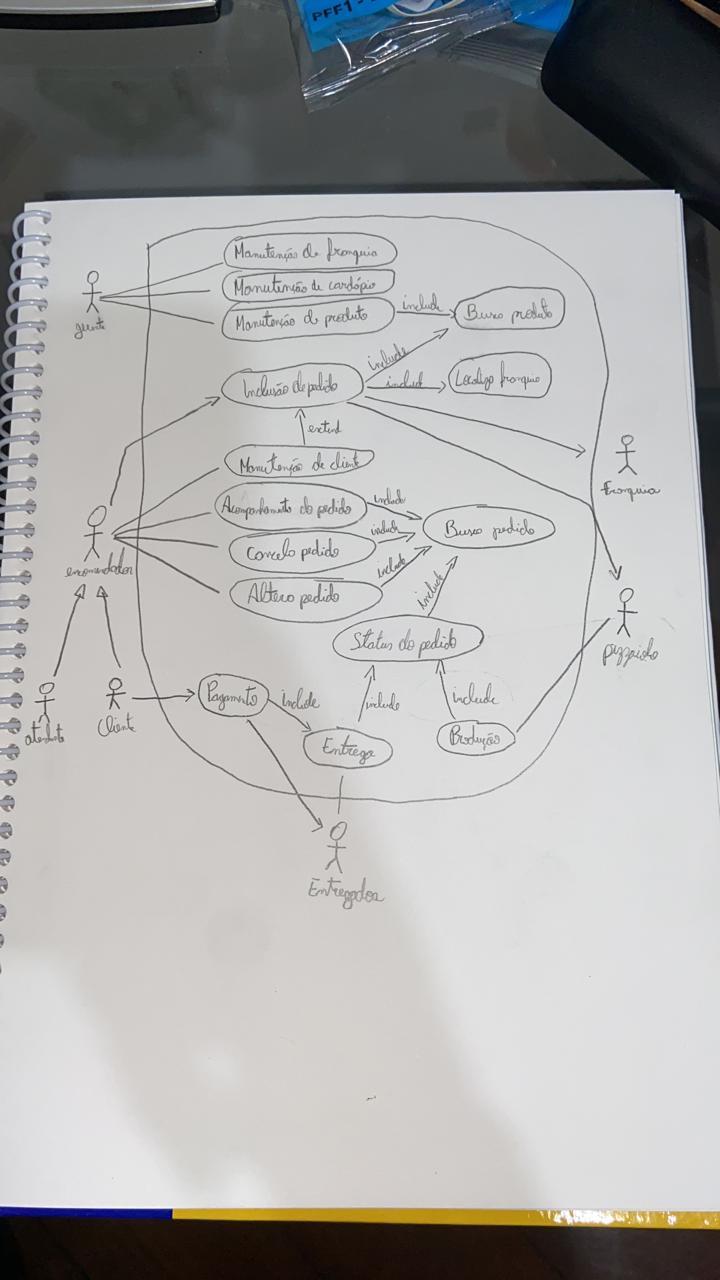 PFF1-
Manutenção de franquia
Manutenção de cardápio
gerente
Manutenção de produto
include
Busco produto
include
Inclusão de pedido
includ
Localizo franquia
extend
Manutenção de cliente
franquia
Acompanhamento do pedido
include
encomendador
Cancelo pedido
include
Busco pedido
Altero pedido
include
include
Status do pedido
pizzaiolo
atendente
Cliente
Pagamento
include
include
include
Entrega
Produção
Entregador